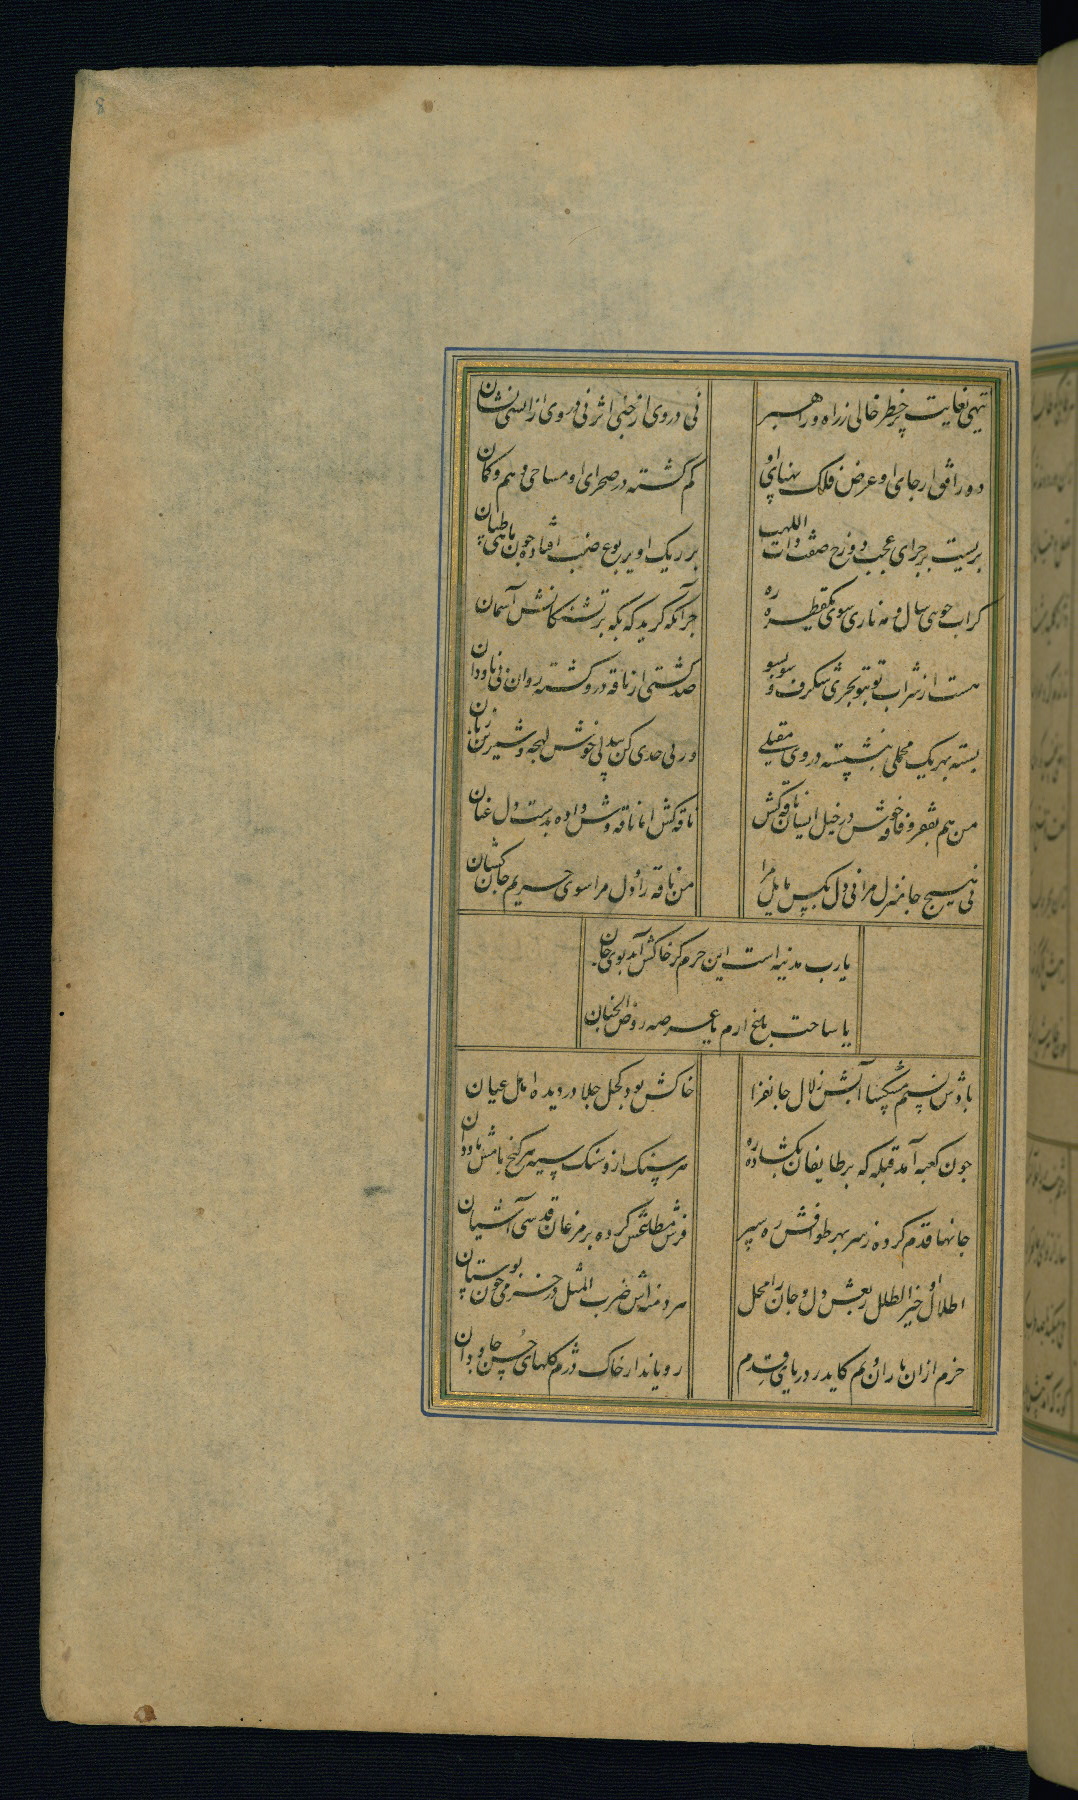 8
تیهی بغایت پرخطر خالی ز راه و راهبر
نی در وی از جنی اثر نی در وی از انسی نشان
دور افق ارجای او عرض فلک پهنای او
کم کشته در صحرای او مساحی وهم و کمان
بریست بر جرای عجب دوزخ صفت ذات اللهب
بر ریک او یربوع ضب افتاده چون ماهی طپان
کر آب جوی سال و مه ناری سوی یکقطره ره
جز آنکه کرید که بکه بر تشنکانش آسمان
هست از شراب تو بتو بحری شکرف و سوبسو
صد کشتی از ناقه درو کشته روان نی ناودان
بسته بهر یک محملی بنشسته در وی مقبلی
در پی حدی کن بیدلی خوش لهجه و شیرین زبان
من هم بفقر و فاقه خوش در خیل ایشان ناقه کش
ناقه کش اما ناقه وش داده بدست دل عنان
نی هیچ جا منزل مرا نی دل بکس مایل مرا
من ناقه را و دل مرا سوی حریم جان کشان
یارب مدینه است این حرم کز خاکش آید بوی جان
یا ساحت باغ ارم یا عرصه روض الجنان
بادش نسیم مشکسا آبش زلال جانفزا
خاکش بود کحل جلا در دیده اهل عیان
چون کعبه آمد قبله که بر طایفان بکشاده ره
هر سنک ازو سنک سیه هر کنج بامش ناودان
جانها قدم کرده ز سر بهر طوافش ره سپر
فرش مطلقش کرده پر مرغان قدسی آشیان
اطلال او خیر الطلل ربعش دل و جان را محل
هر دمنه اش ضرب المثل در خرمی چون بوستان
خرم از ان باران و یم کاید ز دریای قدم
رویاند از خاک درم کلهای حسن جاودان